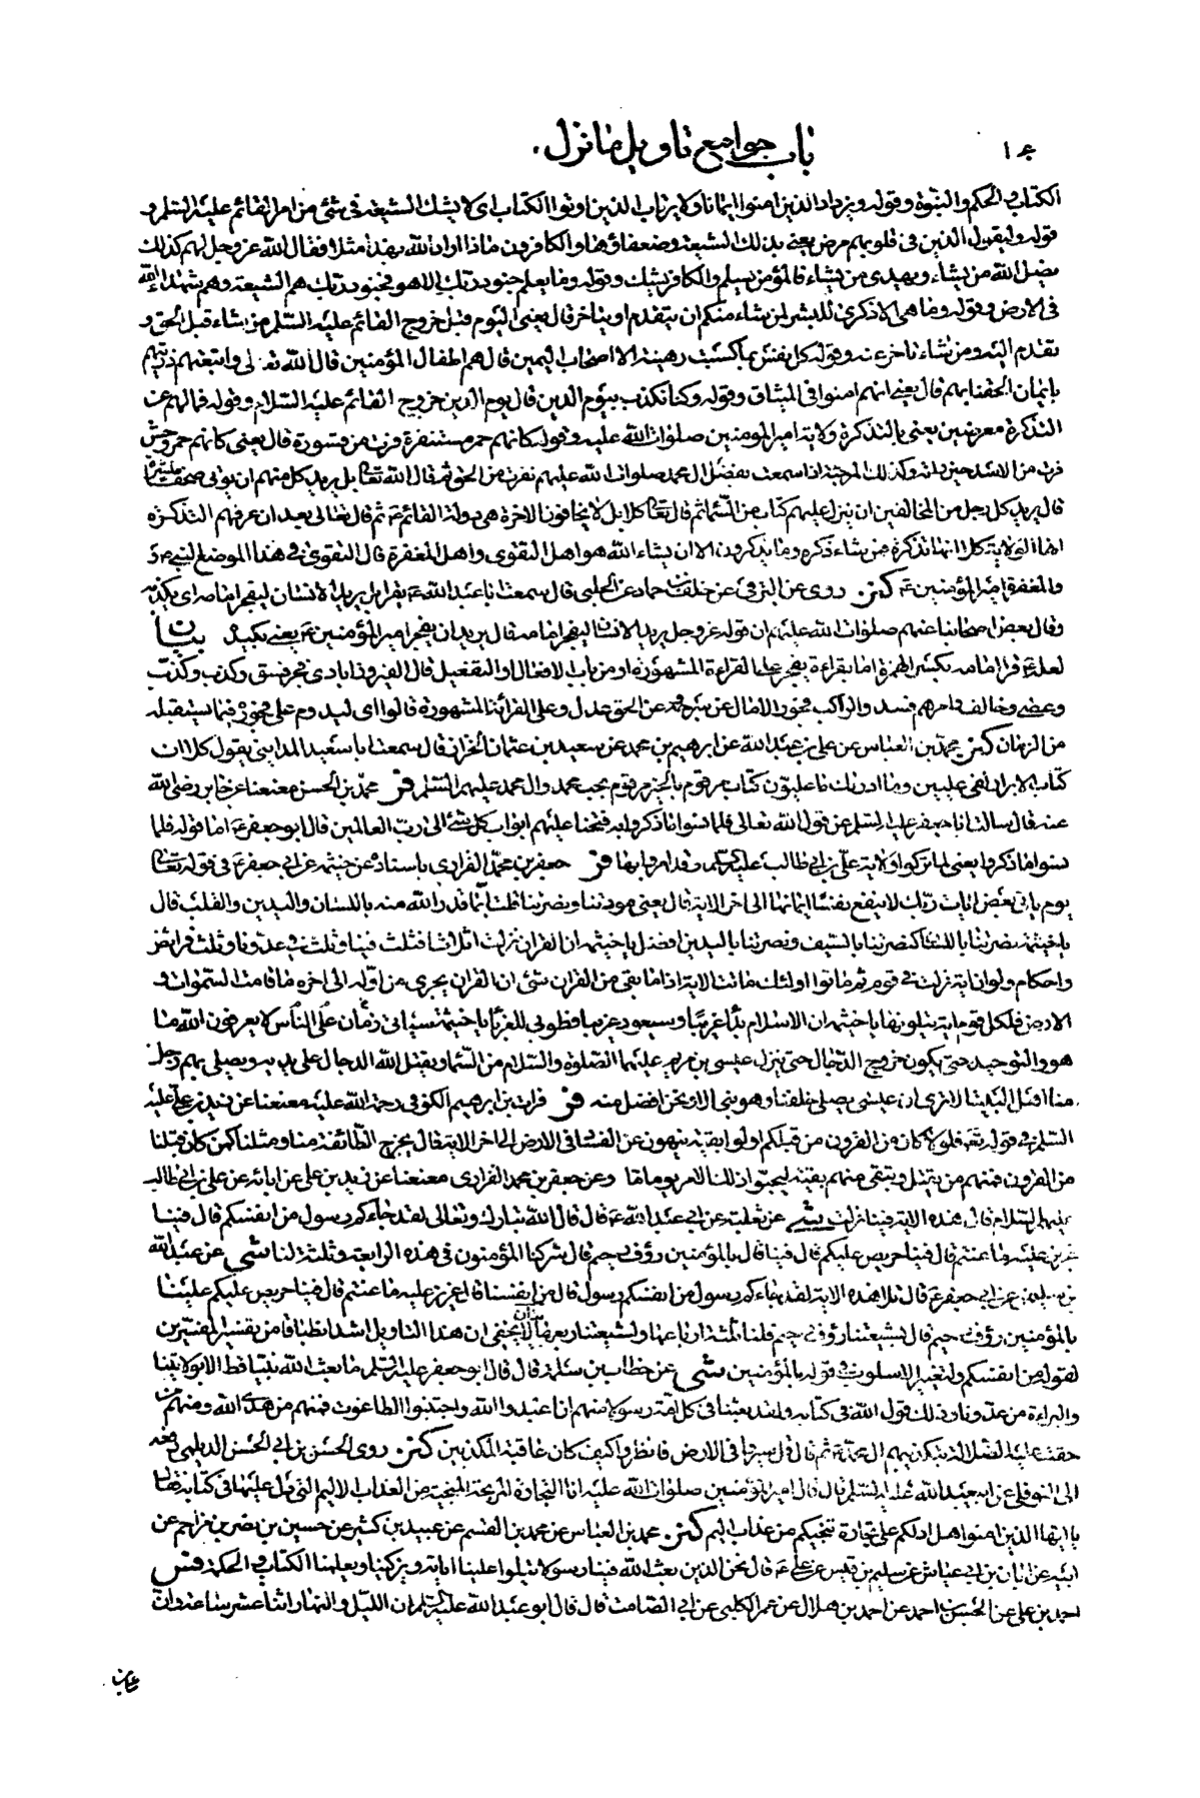 باب جوامع تاويل ما نزل
الكتاب والحكم والنبوة وقوله ويزداد الذين امنوا ايمانا ولا يرتاب الذين اوتوا الكتاب اى لا يشك الشيعة فى شئ من امر القائم عليه السلم و
قوله وليقول الذين فى قلوبهم مرض يعنى بذلك الشيعة وضعفاؤها والكافرون ماذا اراد الله بهذا مثلا فقال الله عز وجل لهم كذلك
يضل الله من يشاء ويهدى من يشاء فالمؤمن يسلم والكافر يشك وقوله وما يعلم جنود ربك الا هو فجنود ربك هم الشيعة وهم شهداء الله
فى الارض وقوله وما هى الا ذكرى للبشر لمن شاء منكم ان يتقدم او يتاخر قال يعنى اليوم قبل خروج القائم عليه السلم من شاء قبل الحق و
تقدم اليه ومن شاء تاخر عنه وقوله كل نفس بما كسبت رهينة الا اصحاب اليمين قال هم اطفال المؤمنين قال الله تعالى واتبعتهم ذريتهم
بايمان الحقنا بهم قال يعنى انهم امنوا فى الميثاق وقوله وكنا نكذب بيوم الدين قال يوم الدين خروج القائم عليه السلام وقوله فما لهم عن
التذكرة معرضين يعنى بالتذكرة ولاية امير المؤمنين صلوات الله عليه وقوله كانهم حمر مستنفرة فرت من قسورة قال يعنى كانهم حمر وحش
فرت من الاسد حين راته وكذلك المرجئة اذا سمعت بفضل ال محمد صلوات الله عليهم نفرت من الحق ثم قال الله تعالى بل يريد كل منهم ان يؤتى صحفا منشرة
قال يريد كل رجل من المخالفين ان ينزل عليهم كتاب من السماء ثم قال تعالى كلا بل لا يخافون الاخرة هى دولة القائم ع ثم قال تعالى بعد ان عرفهم التذكرة
انها الولاية كلا انها تذكرة فمن شاء ذكره وما يذكرون الا ان يشاء الله هو اهل التقوى واهل المغفرة قال التقوى فى هذا الموضع النبى ص
والمغفرة امير المؤمنين ع كنز روى عن البرقى عن خلف بن حماد عن الحلبى قال سمعت ابا عبد الله ع يقرا بل يريد الانسان ليفجر امامه اى يكذبه
وقال بعض اصحابنا عنهم صلوات الله عليهم ان قوله عز وجل يريد الانسان ليفجر امامه قال يريد ان يفجر امير المؤمنين ع يعنى يكيده بيان
لعله ع قرا امامه بكسر الهمزة اما بقراءة يفجر على القراءة المشهورة او من باب الافعال او التفعيل قال الفيروزابادى فجر فسق وكذب وكذب
وعصى وخالف وامرهم فسد والراكب فجورا مال عن سرجه وعن الحق عدل وعلى القراءة المشهورة قالوا اى ليدوم على فجوره فيما يستقبله
من الزمان كنز محمد بن العباس عن على بن عبد الله عن ابرهيم بن محمد عن سعيد بن عثمان الخزاز قال سمعت ابا سعيد المداينى يقول كلا ان
كتاب الابرار لفى عليين وما ادريك ما عليون كتاب مرقوم بالخير مرقوم بحب محمد وال محمد عليهم السلم فر محمد بن الحسن معنعنا عن جابر رضى الله
عنه قال سالت ابا جعفر عليه السلم عن قول الله تعالى فلما نسوا ما ذكروا به فتحنا عليهم ابواب كل شئ الى رب العالمين قال ابو جعفر ع اما قوله فلما
نسوا ما ذكروا يعنى لما تركوا ولاية على بن ابى طالب عليه السلم وقد امروا بها فر جعفر بن محمد الفزارى باسناده عن خيثمة عن ابى جعفر ع فى قوله تعالى
يوم ياتى بعض ايات ربك لا ينفع نفسا ايمانها الى اخر الاية قال يعنى مودتنا ونصرتنا قلت انما قدر الله منه باللسان واليدين والقلب قال
يا خيثمة نصرتنا باللسان كنصرتنا بالسيف ونصرتنا باليدين افضل يا خيثمة ان القران نزلت اثلاثا فثلث فينا وثلث فى عدونا وثلث فرائض
واحكام ولو ان اية نزلت فى قوم ثم ماتوا اولئك ماتت الاية اذا ما بقى من القران شئ ان القران يجرى من اوله الى اخره ما قامت السموات و
الارض فلكل قوم اية يتلونها يا خيثمة ان الاسلام بدأ غريبا وسيعود غريبا فطوبى للغرباء يا خيثمة سياتى زمان على الناس لا يعرفون الله ما
هو والتوحيد حتى يكون خروج الدجال حتى ينزل عيسى بن مريم عليهما الصلوة والسلام من السماء ويقتل الله الدجال على يديه ويصلى بهم رجل
منا اهل البيت الا ترى ان عيسى يصلى خلفنا وهو نبى الا ونحن افضل منه فر فرات بن ابرهيم الكوفى رحمة الله عليه معنعنا عن زيد بن على عليه
السلم فى قوله تعالى فلولا كان من القرون من قبلكم اولوا بقية ينهون عن الفساد فى الارض الى اخر الاية قال يخرج الطائفة منا ومثلنا كمن كان قبلنا
من القرون فمنهم من يقتل ويبقى منهم بقية ليحيوا ذلك الامر يوما ما وعن جعفر بن محمد الفزارى معنعنا عن زيد بن على عن ابائه عن على بن ابى طالب
عليهم السلام قال هذه الاية فينا نزلت شى عن ثعلبة عن ابى عبد الله ع قال قال الله تبارك وتعالى لقد جاءكم رسول من انفسكم قال فينا
عزيز عليه ما عنتم قال فينا حريص عليكم قال فينا قال بالمؤمنين رؤف رحيم قال شركنا المؤمنون فى هذه الرابعة وثلثة لنا شى عن عبد الله
بن سليمان عن ابى جعفر ع قال تلا هذه الاية لقد جاءكم رسول من انفسكم قال من انفسنا قال عزيز عليه ما عنتم قال فينا حريص عليكم علينا
بالمؤمنين رؤف رحيم قال لشيعتنا رؤف رحيم فلنا ثلثة ارباعها ولشيعتنا ربعها بيان لا يخفى ان هذا التاويل اشد انطباقا من تفسير المفسرين
لقوله من انفسكم ولتغيير الاسلوب فى قوله بالمؤمنين شى عن خطاب بن سلمة قال قال ابو جعفر عليه السلم ما بعث الله نبيا قط الا بولايتنا
والبراءة من عدونا وذلك قول الله فى كتابه ولقد بعثنا فى كل امة رسولا منهم ان اعبدوا الله واجتنبوا الطاغوت فمنهم من هدى الله ومنهم من
حقت عليه الضلالة بتكذيبهم ال محمد ثم قال قل سيروا فى الارض فانظروا كيف كان عاقبة المكذبين كنز روى الحسن بن ابى الحسن الديلمى رفعه
الى النوفلى عن ابى عبد الله عليه السلم قال قال امير المؤمنين صلوات الله عليه انا التجارة المربحة المنجية من العذاب الاليم التى دل عليها فى كتابه فقال
يا ايها الذين امنوا هل ادلكم على تجارة تنجيكم من عذاب اليم كنز محمد بن العباس عن محمد بن القسم عن عبيد بن كثير عن حسين بن نصر بن مزاحم عن
ابيه عن ابان بن ابى عياش عن سليم بن قيس عن على ع قال نحن الذين بعث الله فينا رسولا يتلوا علينا اياته ويزكينا ويعلمنا الكتاب والحكمة فس
احمد بن على عن الحسين بن احمد عن احمد بن هلال عن عمر الكلبى عن ابى الصامت قال قال ابو عبد الله عليه السلم ان الليل والنهار اثنا عشر ساعة وان